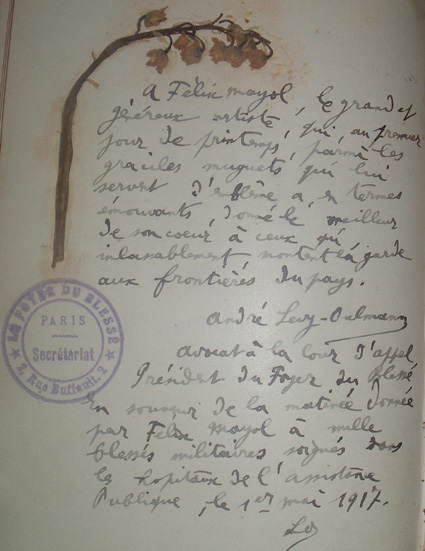 A Félix Mayol, le grand et
généreux artiste, qui, au premier
jour de printemps, parmi les
graciles muguets qui lui
servent d'emblème a, en termes
émouvants, donné le meilleur
de son coeur à ceux qui
inlassablement montent la garde
aux frontières du pays.
André Levy-Oulmann
avocat à la cour d'appel
Président du Foyer du Blessé
LE FOYER DU BLESSÉ
PARIS
Secrétariat
2, Rue Buffault, 2
En souvenir de la matinée donnée
par Félix Mayol à mille
blessés militaires soignés dans
les hopitaux de l'assistance
Publique, le 1er mai 1917.